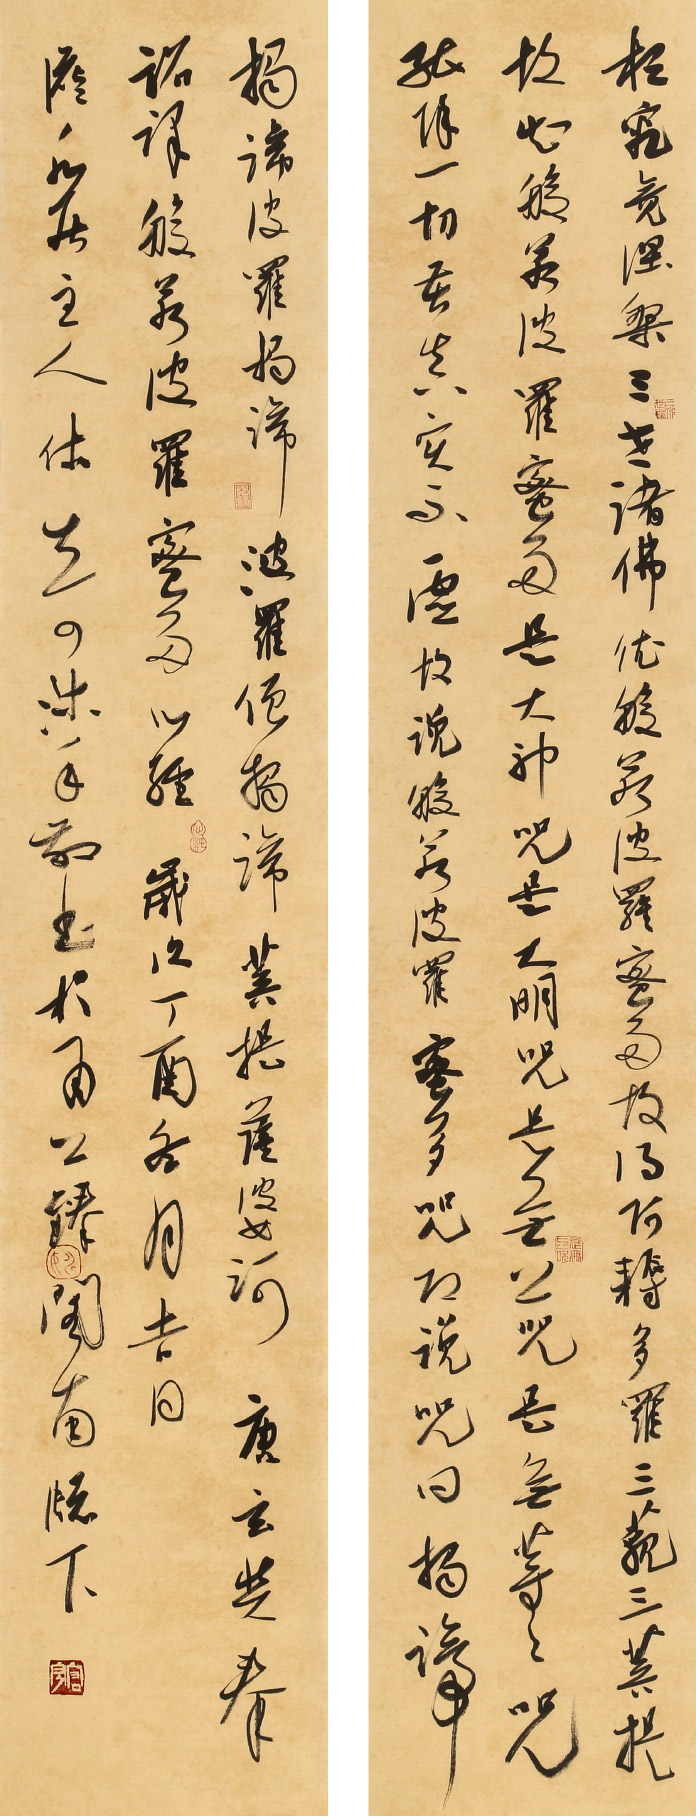 想究竟涅槃三世諸佛依般若波羅蜜多故得阿耨多羅三藐三菩提
故知般若波羅蜜多是大神咒是大明咒是無上咒是無等々咒
能除一切苦真實不虛故說般若波羅蜜多咒即說咒曰揭諦
揭諦波羅揭諦波羅僧揭諦菩提薩婆訶 唐玄奘奉
詔譯般若波羅蜜多心經 歲次丁酉冬月吉日
居主人沐手敬書於甬上臻閣南牕下